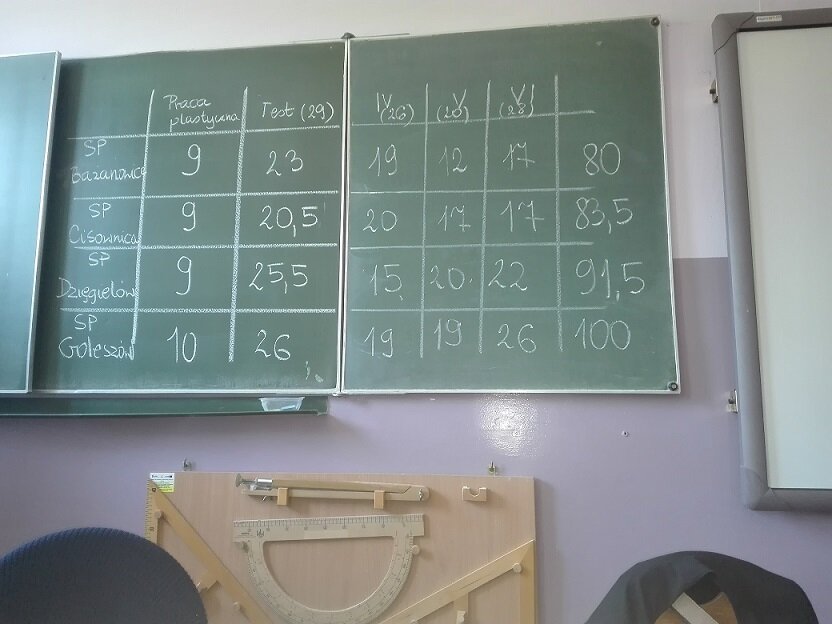 Praca
plastyczna Test (29) IV (26) V (20) V (28)
SP
Bażanowice 9 23 19 12 17 80
SP
Cisownica 9 20,5 20 17 17 83,5
SP
Dzięgielów 9 25,5 15 20 22 91,5
SP
Goleszów 10 26 19 19 26 100